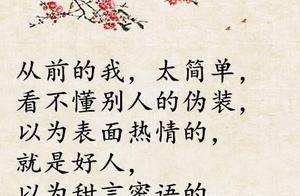 从前的我，太简单，
看不懂别人的伪装，
以为表面热情的，
就是好人，
以为甜言蜜语的